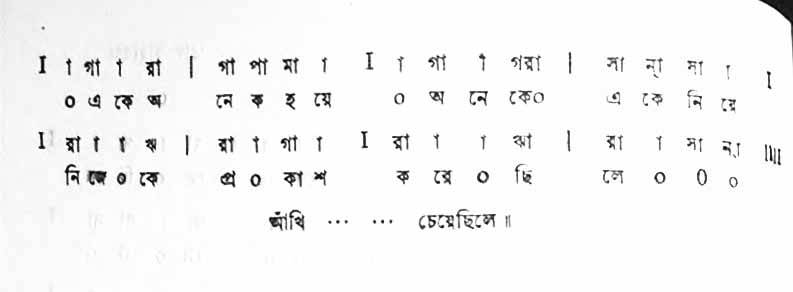 I া গা া রা | গা পা মা া I া গা া গরা | সা ন্‌ সা া I
০ এ কে অ নে ক হ য়ে ০ অ নে কে০ এ কে নি য়ে
I রা া া ঋ | রা া গা া I রা া া ঋা | রা া সা ন্‌া IIII
নি জে ০ কে প্র ০ কা শ ক রে ০ ছি লে ০ ০ ০
আঁখি ... ... চেয়েছিলে ॥